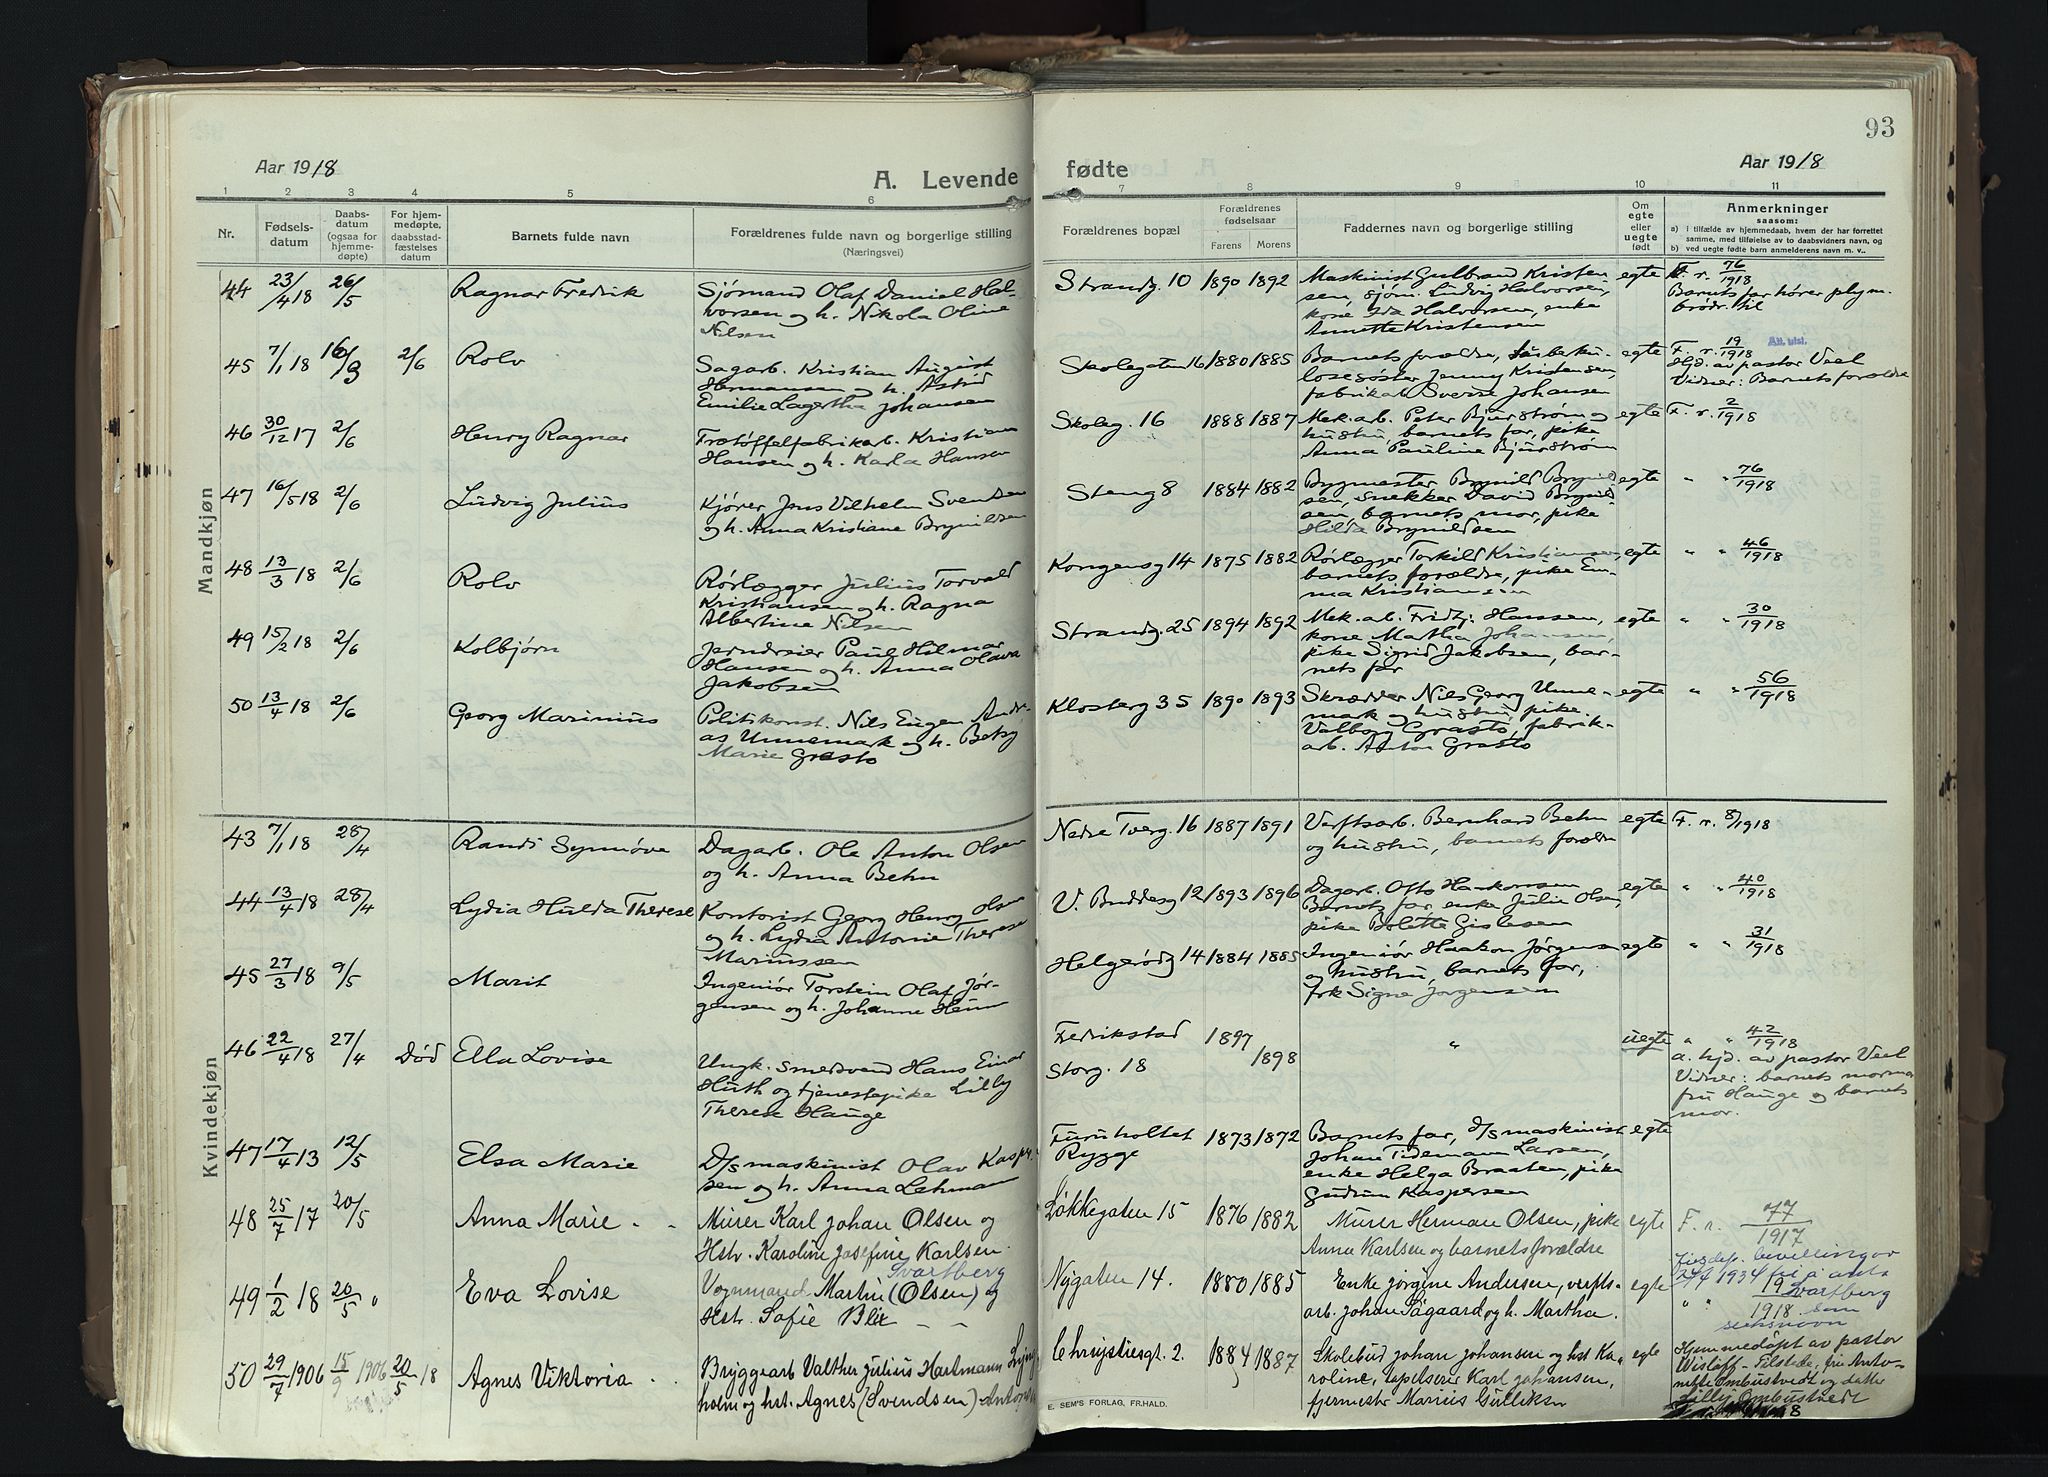 93
Aar 1918
A. Levende
fødte
Aar 1918
1 2 3 4 5 6 7 8 9 10 11
Nr.
Fødsels-
datum
Daabs-
datum
(ogsaa for
hjemme-
døpte)
For hjem-
medøpte,
daabsstad-
fæstelses
datum
Barnets fulde navn
Forældrenes fulde navn og borgerlige stilling
(Næringsvei)
Forældrenes bopæl
Forældrenes
fødselsaar
Farens Morens
Faddernes navn og borgerlige stilling
Om
egte
eller
uegte
født
Anmerkninger
saasom:
a) i tilfælde av hjemmedaab, hvem der har forrettet
samme, med tilføielse av to daabsvidners navn, og
b) ved uegte fødte barn anmelderens navn m. v..
Mandkjøn
44 23/4 18 26/5 Ragnar Fredrik
Sjömand Olaf Daniel Hal-
vorsen og h. Nikola Oline
Nilsen
Strandg. 10 1890 1892
Maskinist Gulbrand Kristen
sen, sjöm. Ludvig Halvorsen,
kone Ida Halvorsen, enke
Annette Kristensen
egte
F. r. 76/1918
Barnets far hører plym.
brødr. til
45 7/1 18 16/3 2/6 Rolv
Sagarb. Kristian August
Hermansen og h. Astrid
Emilie Lagertha Johansen
Skolegaten 16 1880 1885
Barnets forældre, Tuberku-
losesøster Jenny Kristensen,
fabrikat Sverre Johansen
egte
F. r. 19/1918
Att. utst.
Hjd. av pastor Veel
Vidner: Barnets forældre
46 30/12 17 2/6 Henry Ragnar
Trætøffelfabrikarb. Kristian
Hansen og h. Karla Hansen
Skoleg. 16 1888 1887
Mek. arb. Peter Bjurström og
hustru, barnets far, pike
Anna Pauline Bjurström
egte
F. r. 2/1918
47 16/5 18 2/6 Ludvig Julius
Kjører Jens Vilhelm Svendsen
og h. Anna Kristiane Brynildsen
Steng 8 1884 1882
Bygmester Brynild Brynild
sen, snekker David Brynild
sen, barnets mor, pike
Hilda Brynildsen
egte
" " 76/1918
48 13/3 18 2/6 Rolv
Rörlægger Julius Torvald
Kristiansen og h. Ragna
Albertine Nilsen
Kongensg 14 1875 1882
Rörlægger Torkild Kristiansen,
barnets forældre, pike Em-
ma Kristiansen
egte
" " 46/1918
49 15/2 18 2/6 Kolbjørn
Jerndreier Paul Hilmar
Hansen og h. Anna Olava
Jakobsen
Strandg. 25 1894 1892
Mek. ab. Fridtj. Hanssen,
kone Martha Johansen,
pike Sigrid Jakobsen, bar-
nets far
egte
" " 30/1918
50 13/4 18 2/6 Georg Marinius
Politikonst. Nils Eugen Andre-
as Unnemark og h. Betsy
Marie Græsto
Klosterg 35 1890 1893
Skrædder Nils Georg Unne-
mark og hustru, pike
Valborg Græsto, fabrik-
arb. Anton Græsto
egte
" " 56/1918
Kvindekjøn
43 7/1 18 28/4 Randi Synnöve
Dagarb. Ole Anton Olsen
og h. Anna Behn
Nedre Tverg. 16 1887 1891
Verftsarb. Bernhard Behn
og hustru, barnets forældre
egte
F. r. 8/1918
44 13/4 18 28/4 Lydia Hulda Therese
Kontorist Georg Henry Olsen
og h. Lydia Antonie Therese
Marinussen
V. Buddesg 12 1893 1896
Dagarb. Otto Haakonsen
Barnets far, enke Julie Olsen,
pike Bolette Gislesen
egte
" " 40/1918
45 27/3 18 9/5 Marit
Ingeniör Torstein Olaf Jör-
gensen og h. Johanne Heum
Helgerödg 14 1884 1885
Ingeniör Haakon Jörgensen
og hustru, barnets far,
frk Signe Jorgensen
egte
" " 31/1918
46 22/4 18 27/4 Död Ella Lovise
Ungk. smedsvend Hans Einar
Huth og tjenestepike Lilly
Therese Hauge
Fredrikstad
Storg. 18
1897 1898
"
uegte
" " 42/1918
a. hjd. av pastor Veel
Vidner: barnets mormor
fru Hauge og barnets
mor.
47 17/4 13 12/5 Elsa Marie
D/s maskinist Olav Kasper-
sen og h. Anna Lehmann
Furuholtet
Rygge
1873 1872
Barnets far, d/s maskinist
Johan Tidemann Larsen,
enke Helga Braaten, pike
Gudrun Kaspersen
egte
48 25/7 17 20/5 Anna Marie
Murer Karl Johan Olsen og
Hstr. Karoline Josefine Karlsen.
Løkkegaten 15 1876 1882
Murer Herman Olsen, pike
Anna Karlsen og barnets forældre
egte
F. r. 77/1917
49 1/2 18 20/5 Eva Lovise
Svartberg
Vognmand Martin (Olsen) og
Hstr. Sofie Blix
Nygaten 14. 1880 1885
Enke Jørgine Andersen, verfts-
arb. Johan Aagaard og h. Martha.
egte
Justdep. bevilling av
1934 for å anta
" " 19/1918 Svartberg
som
slektsnavn
50 29/7 1906 15/9 1906 20/5 18 Agnes Viktoria
Bryggearb Valther Julius Hartmann Lyng
holm og hst. Agnes (Svendsen)
Chrystiesgt. 2. 1884 1887
Skolebud Johan Johansen og hst Ka-
roline, tapetserer Karl Johansen,
fyrmester Marius Gulliksen
egte
Hjemmedøpt av pastor
Wisløff - Tilstede, fru Anto-
nette Ombustvedt og datter
Lilly Ombustvedt
E. SEM'S FORLAG, FR.HALD.